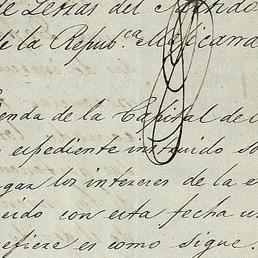 de Letras del Partido
de la Repub.ca Mexicana
enda de la Capital de
expediente instruido so
gar los intereses de la
uido con esta fecha un
refiere es como sigue.